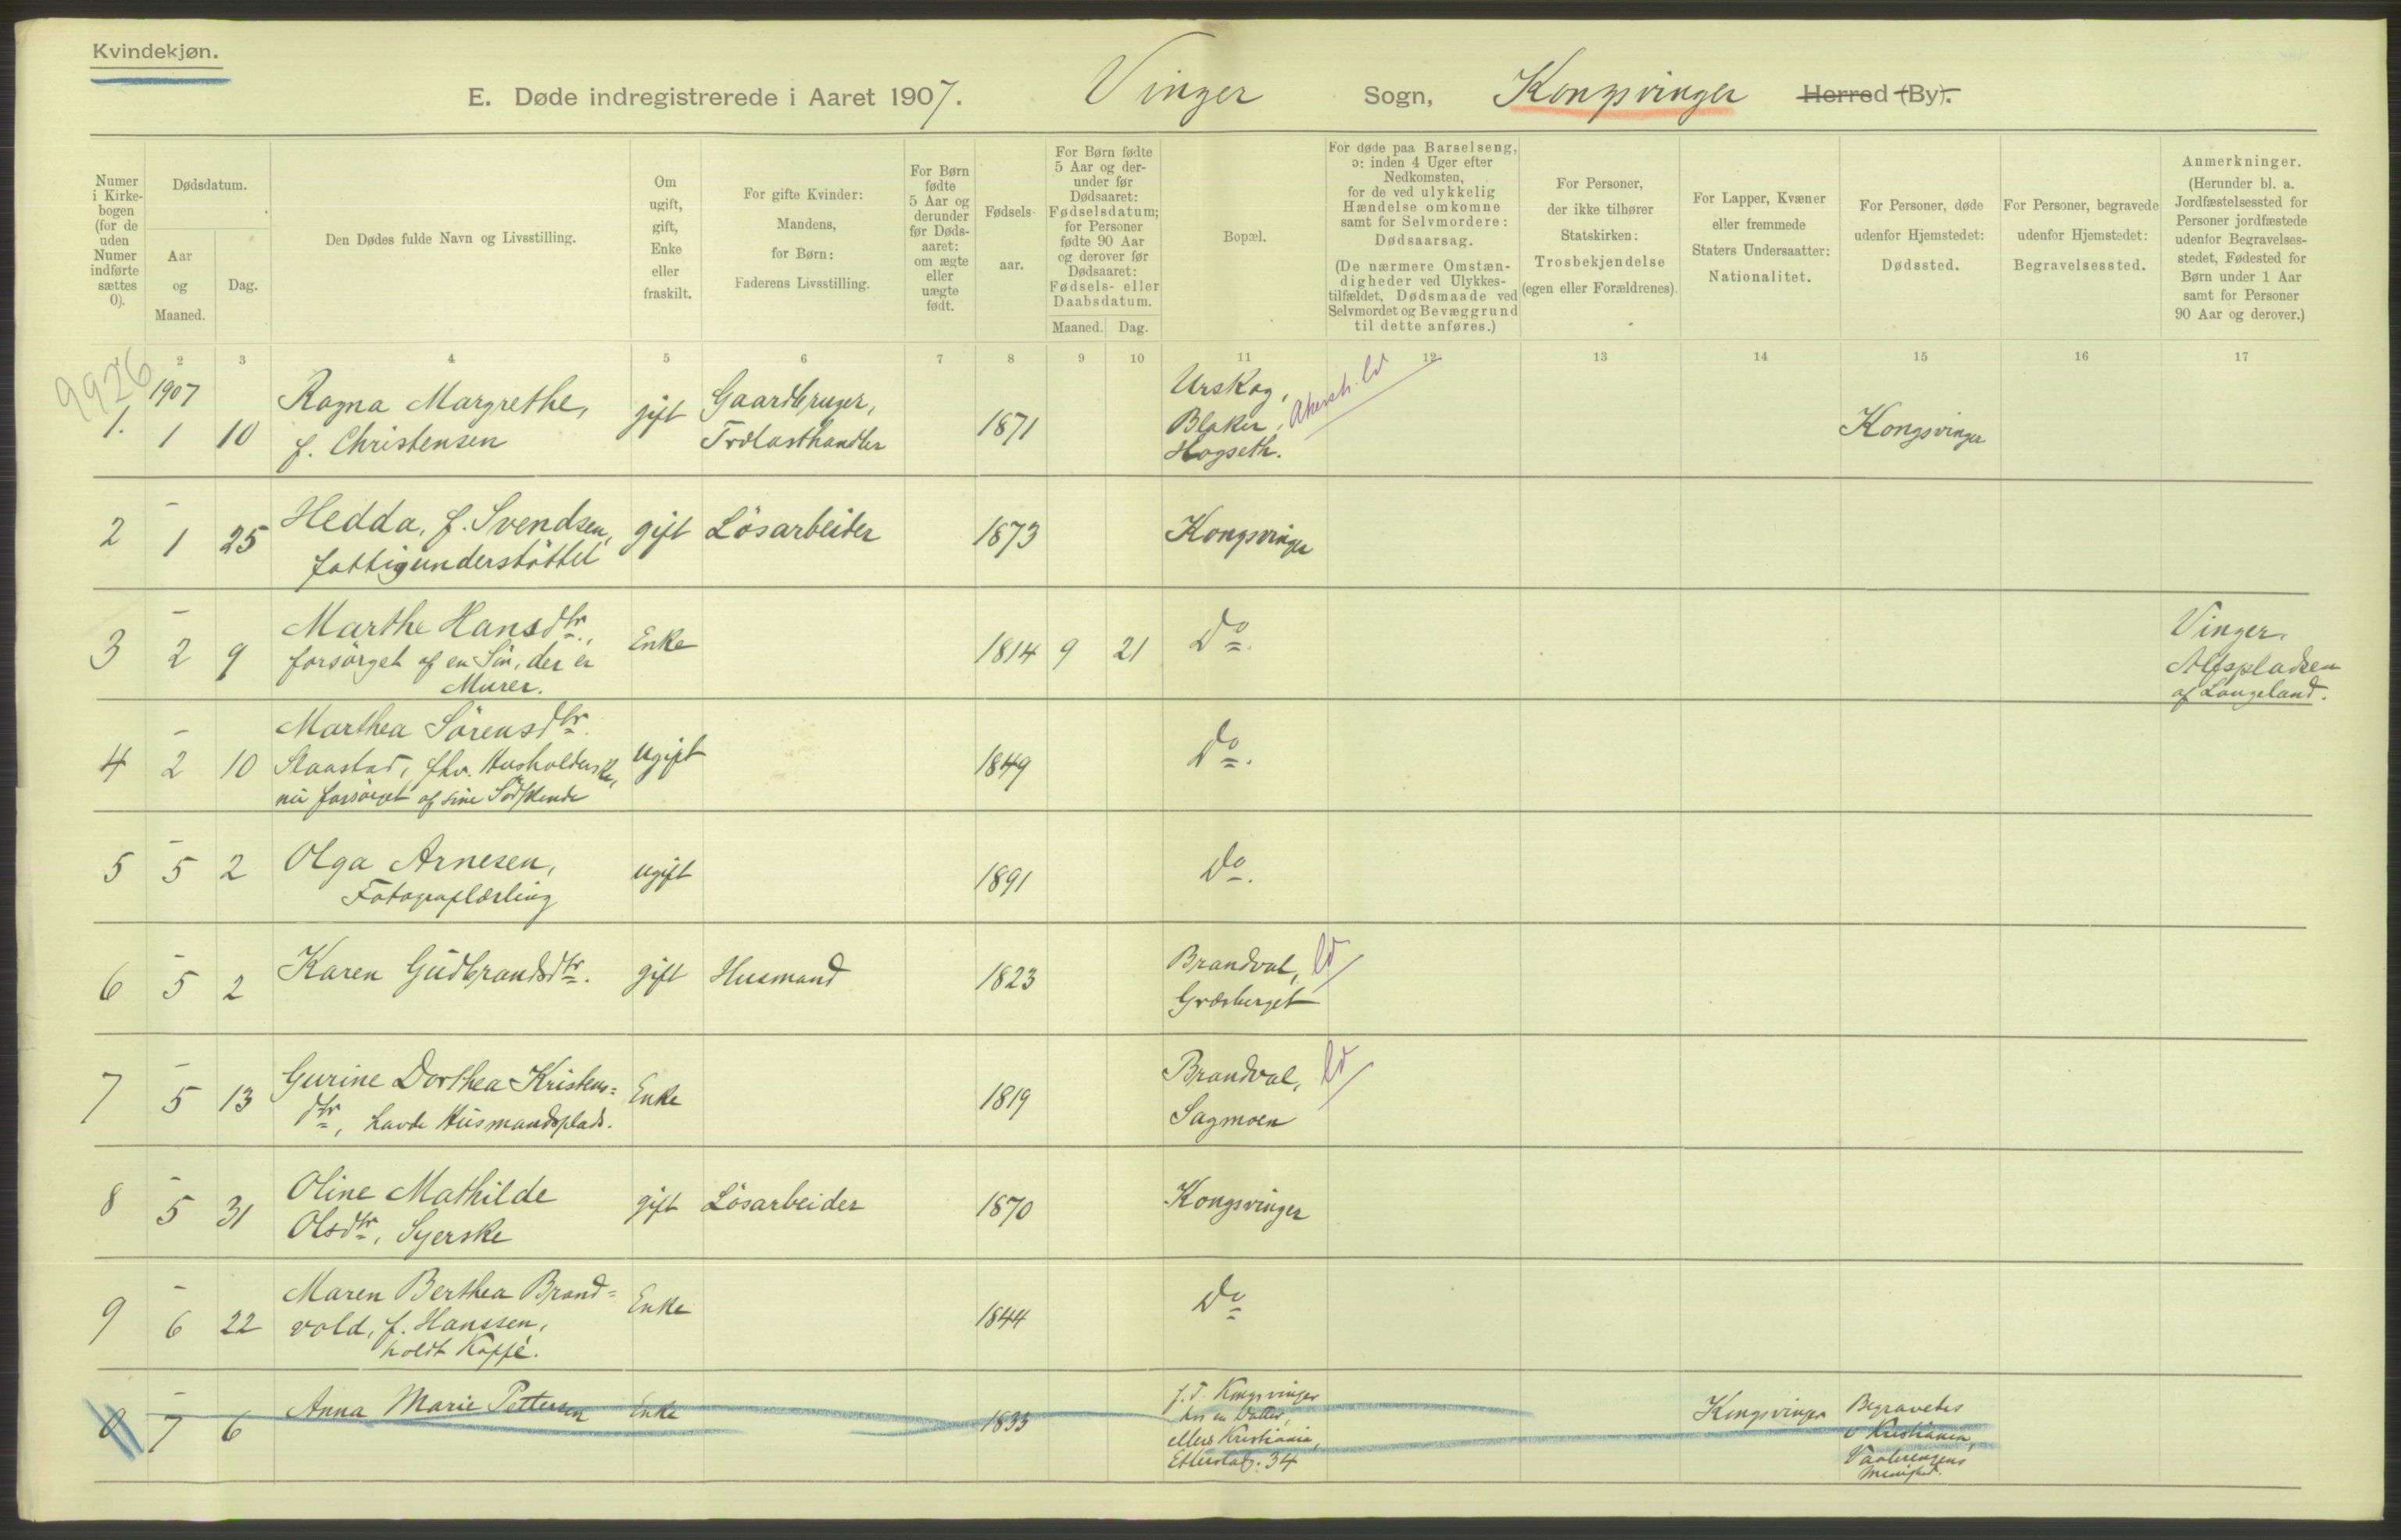 Kvindekjøn.
E. Døde indregistrerede i Aaret 1907. Vinger Sogn, Kongsvinger Herred (By).
Numer i Kirkebogen (for de uden Numer indførte sættes 0).
Dødsdatum.
Aar og Maaned.
Dag.
Den Dødes fulde Navn og Livsstilling.
Om ugift, gift, Enke eller fraskilt.
For gifte Kvinder: Mandens, for Børn: Faderens Livsstilling.
For Børn fødte 5 Aar og derunder før Døds-aaret: om ægte eller uægte født.
Fødsels-aar.
For Børn fødte 5 Aar og der-under før Dødsaaret: Fødselsdatum; for Personer fødte 90 Aar og derover før Dødsaaret: Fødsels- eller Daabsdatum.
Maaned. Dag.
Bopæl.
For døde paa Barselseng, ɔ: inden 4 Uger efter Nedkomsten, for de ved ulykkelig Hændelse omkomne samt for Selvmordere: Dødsaarsag.
(De nærmere Omstæn-digheder ved Ulykkes-tilfældet, Dødsmaade ved Selvmordet og Bevæggrund til dette anføres.)
For Personer, der ikke tilhører Statskirken: Trosbekjendelse (egen eller Forældrenes).
For Lapper, Kvæner eller fremmede Staters Undersaatter: Nationalitet.
For Personer, døde udenfor Hjemstedet: Dødssted.
For Personer, begravede udenfor Hjemstedet: Begravelsessted.
Anmerkninger. (Herunder bl. a. Jordfæstelsessted for Personer jordfæstede udenfor Begravelses-stedet, Fødested for Børn under 1 Aar samt for Personer 90 Aar og derover.)
2 3 4 5 6 7 8 9 10 11 12 13 14 15 16 17
9926
1907
1. 1 10 Ragna Margrethe, gift Gaardbruger, 1871 Urskog, Akersh. ld Kongsvinger
f. Christensen Trælasthandler Blaker,
Hogseth.
2 – 1 25 Hedda, f. Svendsen, gift Løsarbeider 1873 Kongsvinger
fattigunderstøttet
3 – 2 9 Marthe Hansdtr., Enke 1814 9 21 Do. Vinger,
forsørget af en Søn, der er Alfspladsen
Murer. af Langeland.
4 – 2 10 Marthea Sørensdtr. ugift 1849 Do.
Slaastad, fhv. Husholderske,
nu forsørget af sine Sødskende
5 – 5 2 Olga Arnesen, ugift 1891 Do.
Fotograflærling
6 – 5 2 Karen Gudbrandsdtr. gift Husmand 1823 Brandval, ld
Græsberget
7 – 5 13 Gurine Dorthea Kristens= Enke 1819 Brandval, ld
dtr, havde Husmandsplads. Sagmoen
8 – 5 31 Oline Mathilde gift Løsarbeider 1870 Kongsvinger
Olsdtr, Syerske
9 – 6 22 Maren Berthea Brand= Enke 1844 Do
vold, f. Hanssen,
holdt Kaffé.
0 – 7 6 Anna Marie Pettersen Enke 1833 f. T. Kongsvinger Kongsvinger Begravedes
hos en Datter, v Kristiania,
ellers Kristiania, Vaalerengens
Etterstadg. 34 Menighed.